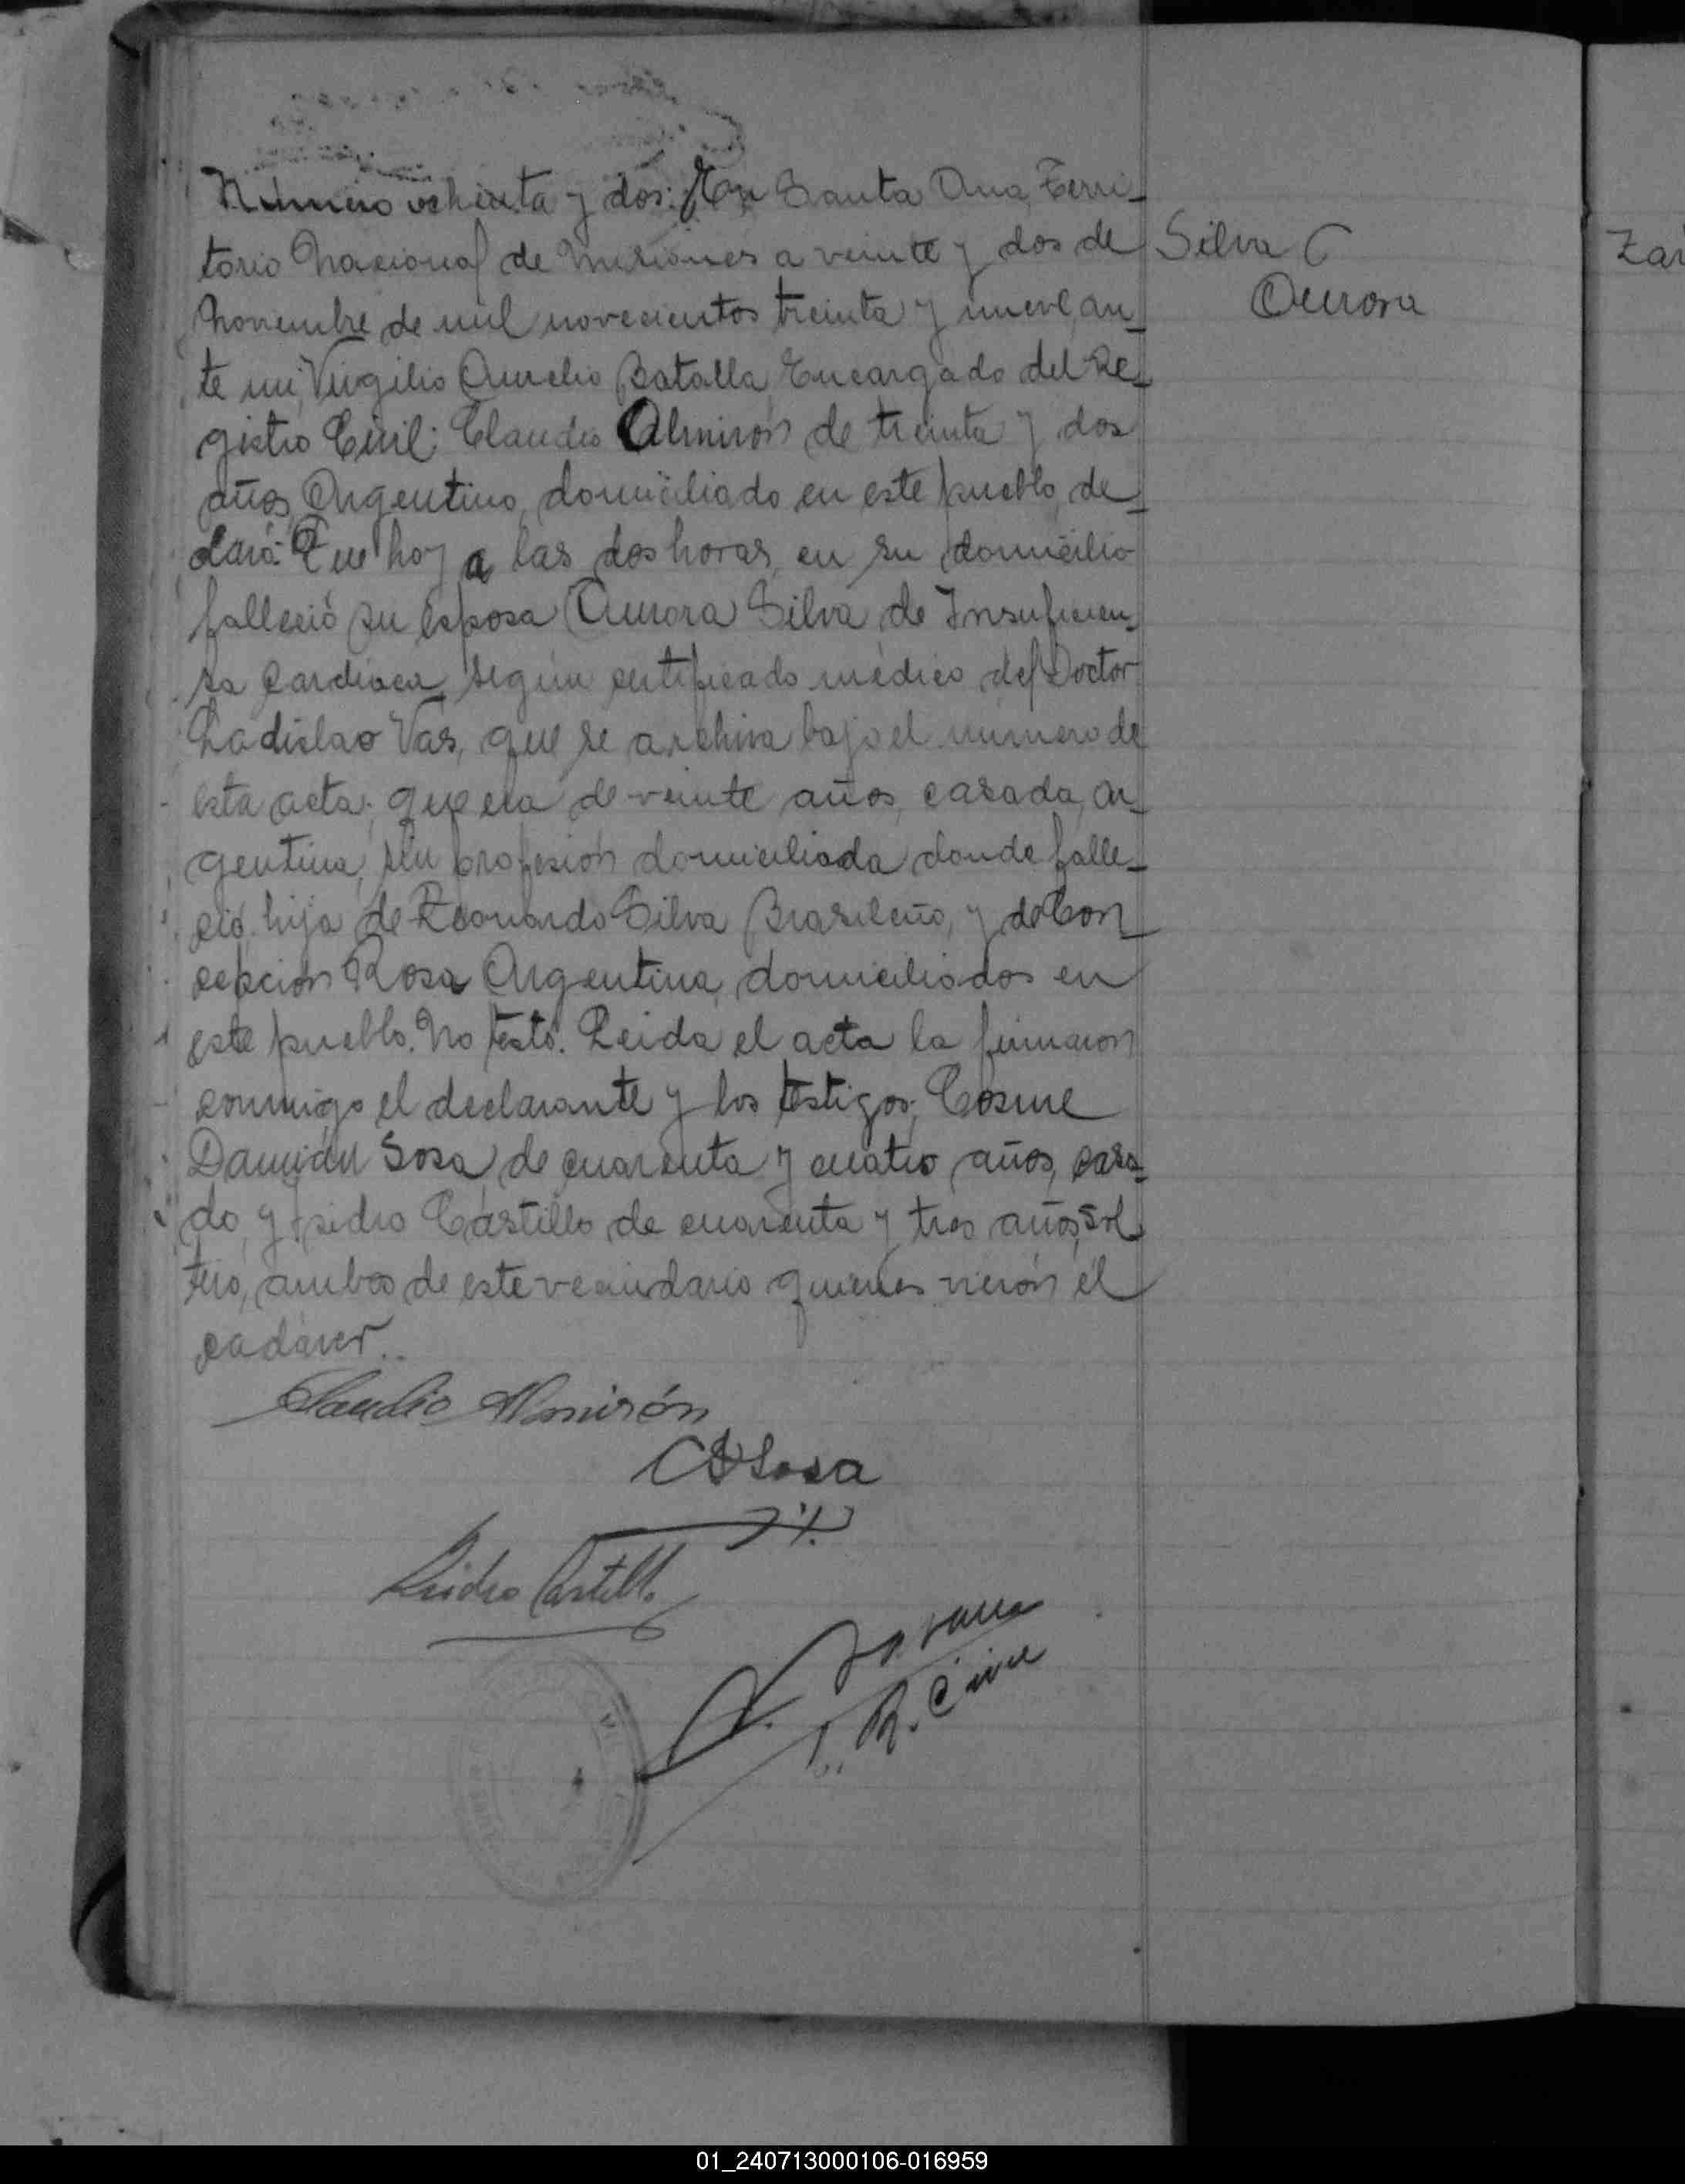 Número ochenta y dos: En Santa Ana, Terri-
torio Nacional de Misiones a veinte y dos de
Noviembre de mil novecientos treinta y nueve, an-
te mi, Virgilio Aurelio Batalla, Encargado del Re-
gistro Civil; Claudio Almirón de treinta y dos
años, Argentino, domiciliado en este pueblo, de-
claró: Que hoy a las dos horas, en su domicilio
falleció su esposa Aurora Silva, de Insuficien-
sa Cardiaca, según certificado médico del Doctor
Ladislao Vas, que se archiva bajo el número de
esta acta; que era de veinte años, casada, Ar-
gentina, sin profesión domiciliada donde falle-
ció, hija de Leonardo Silva Brasileño, y de Con
cepción Rosa Argentina, domiciliados en
este pueblo. No testó. Leida el acta la firmaron
conmigo el declarante y los testigos, Cosme
Damián Sosa, de cuarenta y cuatro años, casa-
do, y Isidro Castillo de cuarenta y tres años, sol
tero, ambos de este vecindario quienes vierón el
cadáver..
Silva
Aurora
Zar
Claudio Almirón
CDSosa
Isidro Castillo
R. Civil
01_240713000106-016959